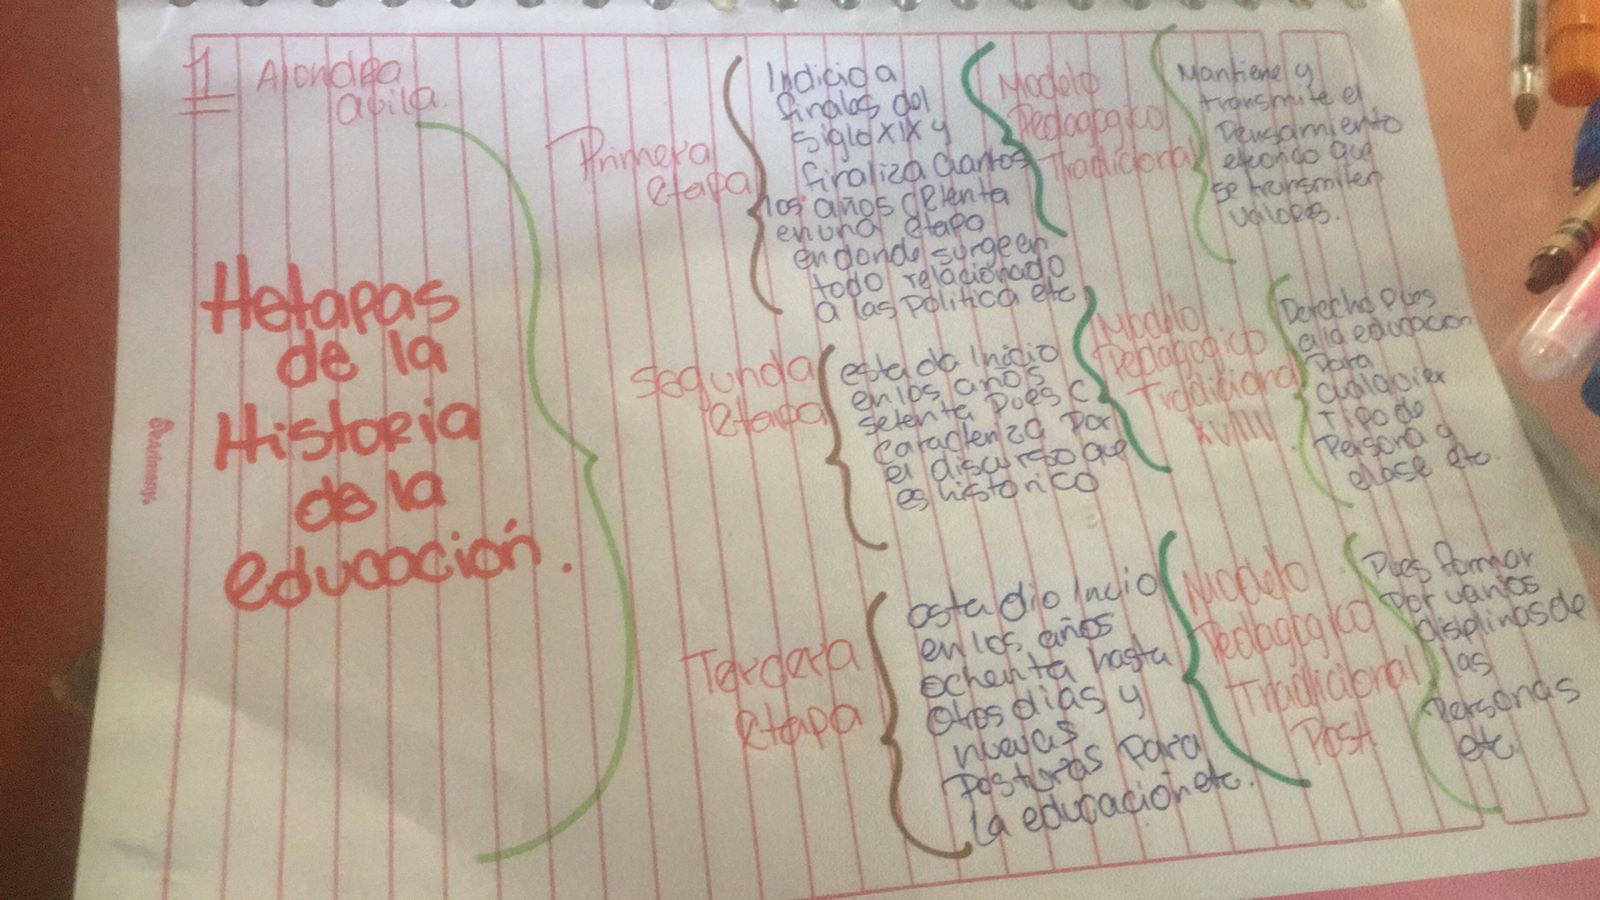 1
Alondra
avila.
Hetapas
de la
Historia
de la
educación.
Primera
etapa
Indicid a
finales del
siglo XIX y
finaliza
los años
en una etapa
en donde surge en
todo relacionado
a las politica etc
Modelo
Pedagogico
Tradicional
Mantiene y
transmite el
Pensamiento
que
se transmiten
valores.
Segunda
etapa
esta da inicio
en los años
setenta pues
caracteriza por
el discurso que
es historico
Modelo
Pedagogico
Tradicional
XVIIII
Derecho pues
a la educacion
Para
cualquier
tipo de
Persona y
clase etc.
Tercera
etapa
esta dio Incio
en los años
ochenta hasta
otros dias y
nuevas
Posturas para
la educación etc.
Modelo
Pedagogico
Tradicional
Post
Pues formar
por varios
displinas de
las
Personas
etc